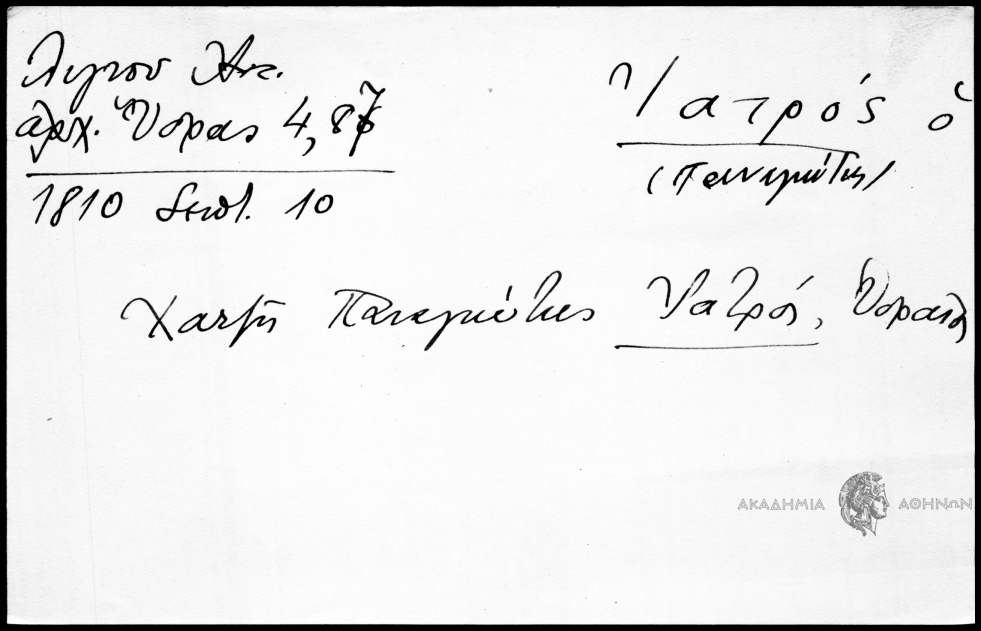 Λιγνου Αντ.
ἀρχ. Ὕδρας 4, 87
1810 Σεπτ. 10
Ἰατρός ὁ
(Παναγιώτης)
Χατζῆ Παναγιώτης Ἰατρός, Ὑδραῖος
ΑΚΑΔΗΜΙΑ ΑΘΗΝΩΝ